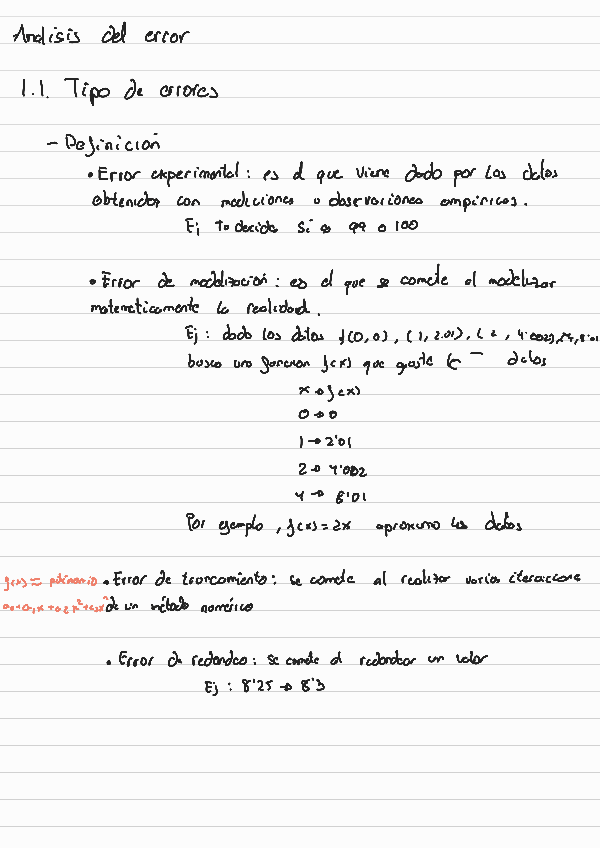 Analisis del error
1.1. Tipo de errores
- Definición
• Error experimental : es el que viene dado por los datos
obtenidos con mediciones o observaciones empíricas.
Ej Tu decides si es 99 o 100
• Error de modelización : es el que se comete al modelizar
matemáticamente la realidad.
Ej : dado los datos f(0,0), (1, 2.01), (2, 4'002),
busco una funcion f(x) que ajuste datos
x → f(x)
0 → 0
1 → 2'01
2 → 4'002
4 → 8'01
Por ejemplo, f(x) = 2x aproxima los datos
f(x) ≈ polinomio • Error de truncamiento : se comete al realizar varias iteraciones
a₀+a₁x+a₂x²+a₃x³ de un método numérico
• Error de redondeo : se comete al redondear un valor
Ej : 8'25 → 8'3